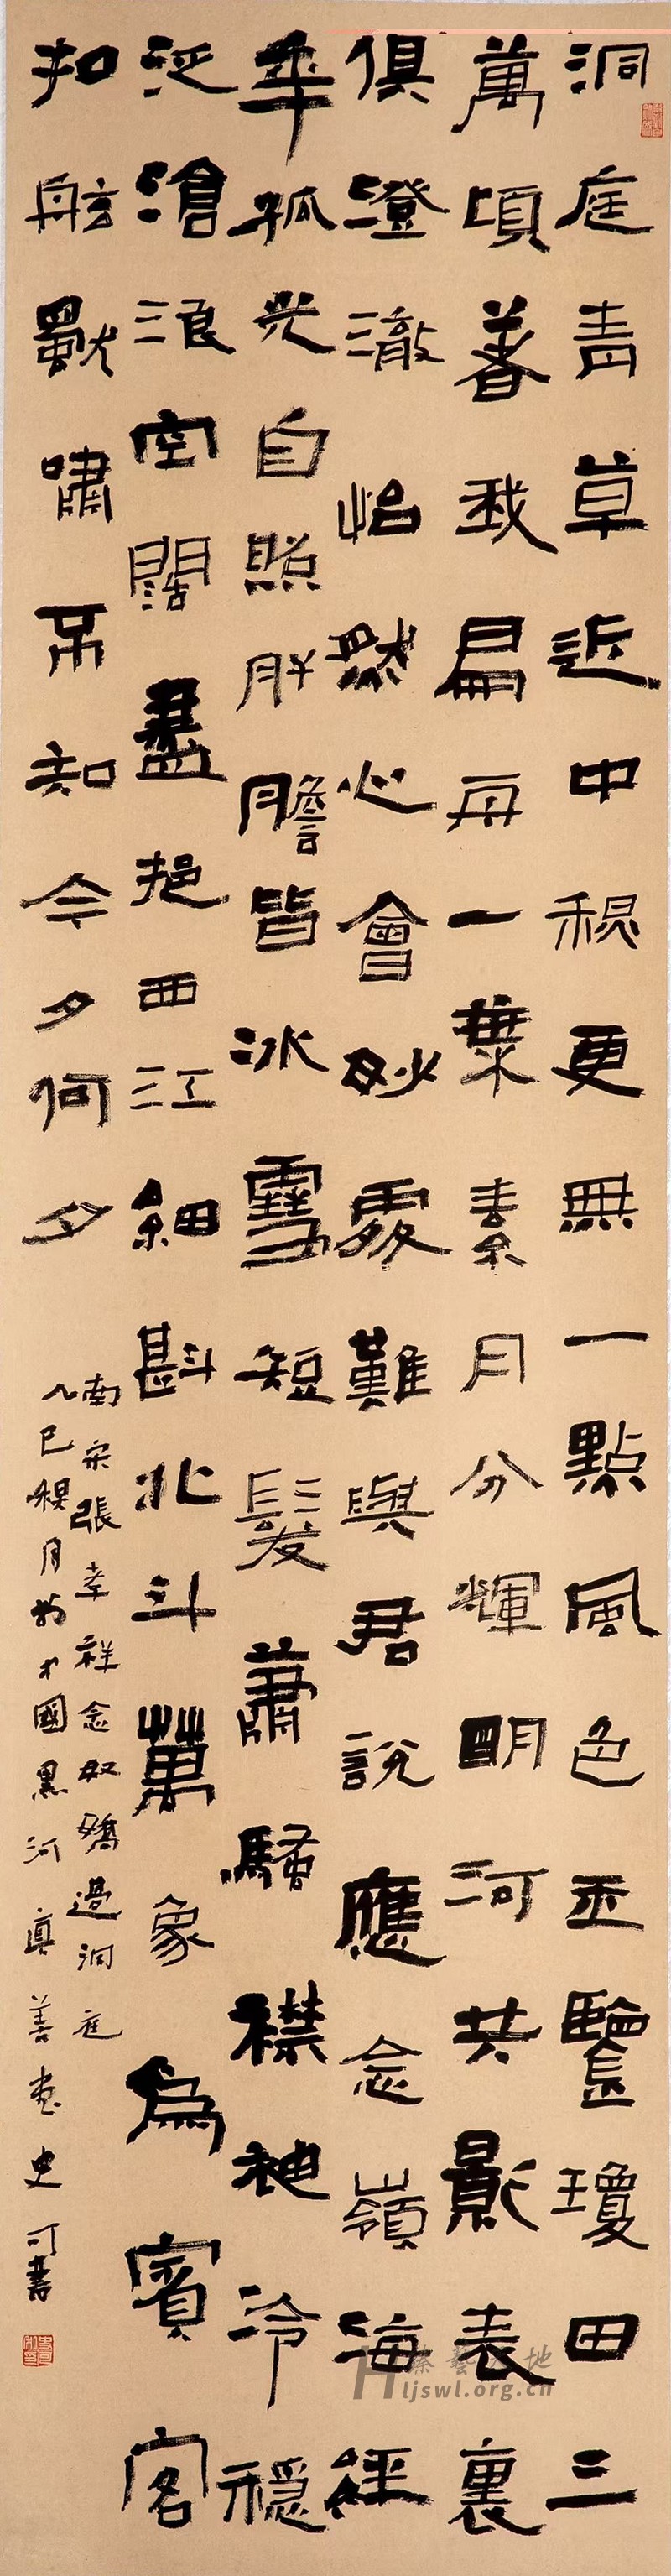 洞庭青草近中秋更無一點風色玉鑒瓊田三
萬頃著我扁舟一葉素月分輝明河共影表裏
俱澄澈怡然心會妙處難與君說應念嶺海經
年孤光自照肝膽皆冰雪短髮蕭騷襟袖冷穩
泛滄浪空闊盡挹西江細斟北斗萬象為賓客
扣舷獨嘯不知今夕何夕
南宋張孝祥念奴嬌過洞庭
乙巳秋月於中國黑河真善畫史可書
ljswl.org.cn